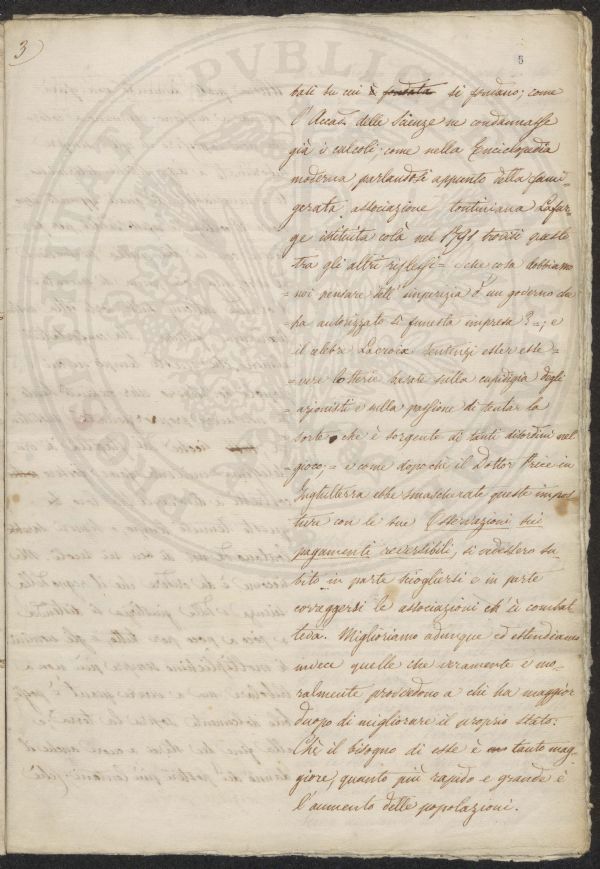 3
5
bali su cui è fondata si fondano; come
l'Accad. delle Scienze ne condannasse
già i calcoli; come nella Enciclopedia
moderna parlandosi appunto della fami-
gerata associazione tontiniana Lafar-
ge istituita colà nel 1791 trovisi queste
tra gli altri riflessi = che cosa dobbiamo
= noi pensare dell'imperizia d'un governo che
ha autorizzato sì funesta impresa? =; e
il celebre Lacroix sentenzi esser este =
= vere lotterie basate sulla cupidigia degli
= azionisti e sulla passione di tentar la
sorte che è sorgente di tanti disordini nel
gioco; = e come dopo che il Dottor Price in
Inghilterra ebbe smascherate queste impos-
ture con le sue Osservazioni sui
pagamenti reversibili, si vedessero su-
bito in parte sciogliersi e in parte
correggersi le associazioni ch'ei combat-
teva. Miglioriamo adunque ed estendiamo
invece quelle che veramente e mo-
ralmente provvedono a chi ha maggior
duopo di migliorare il proprio stato:
Chè il bisogno di esse è tanto mag-
giore, quanto più rapido e grande è
l'aumento delle popolazioni.